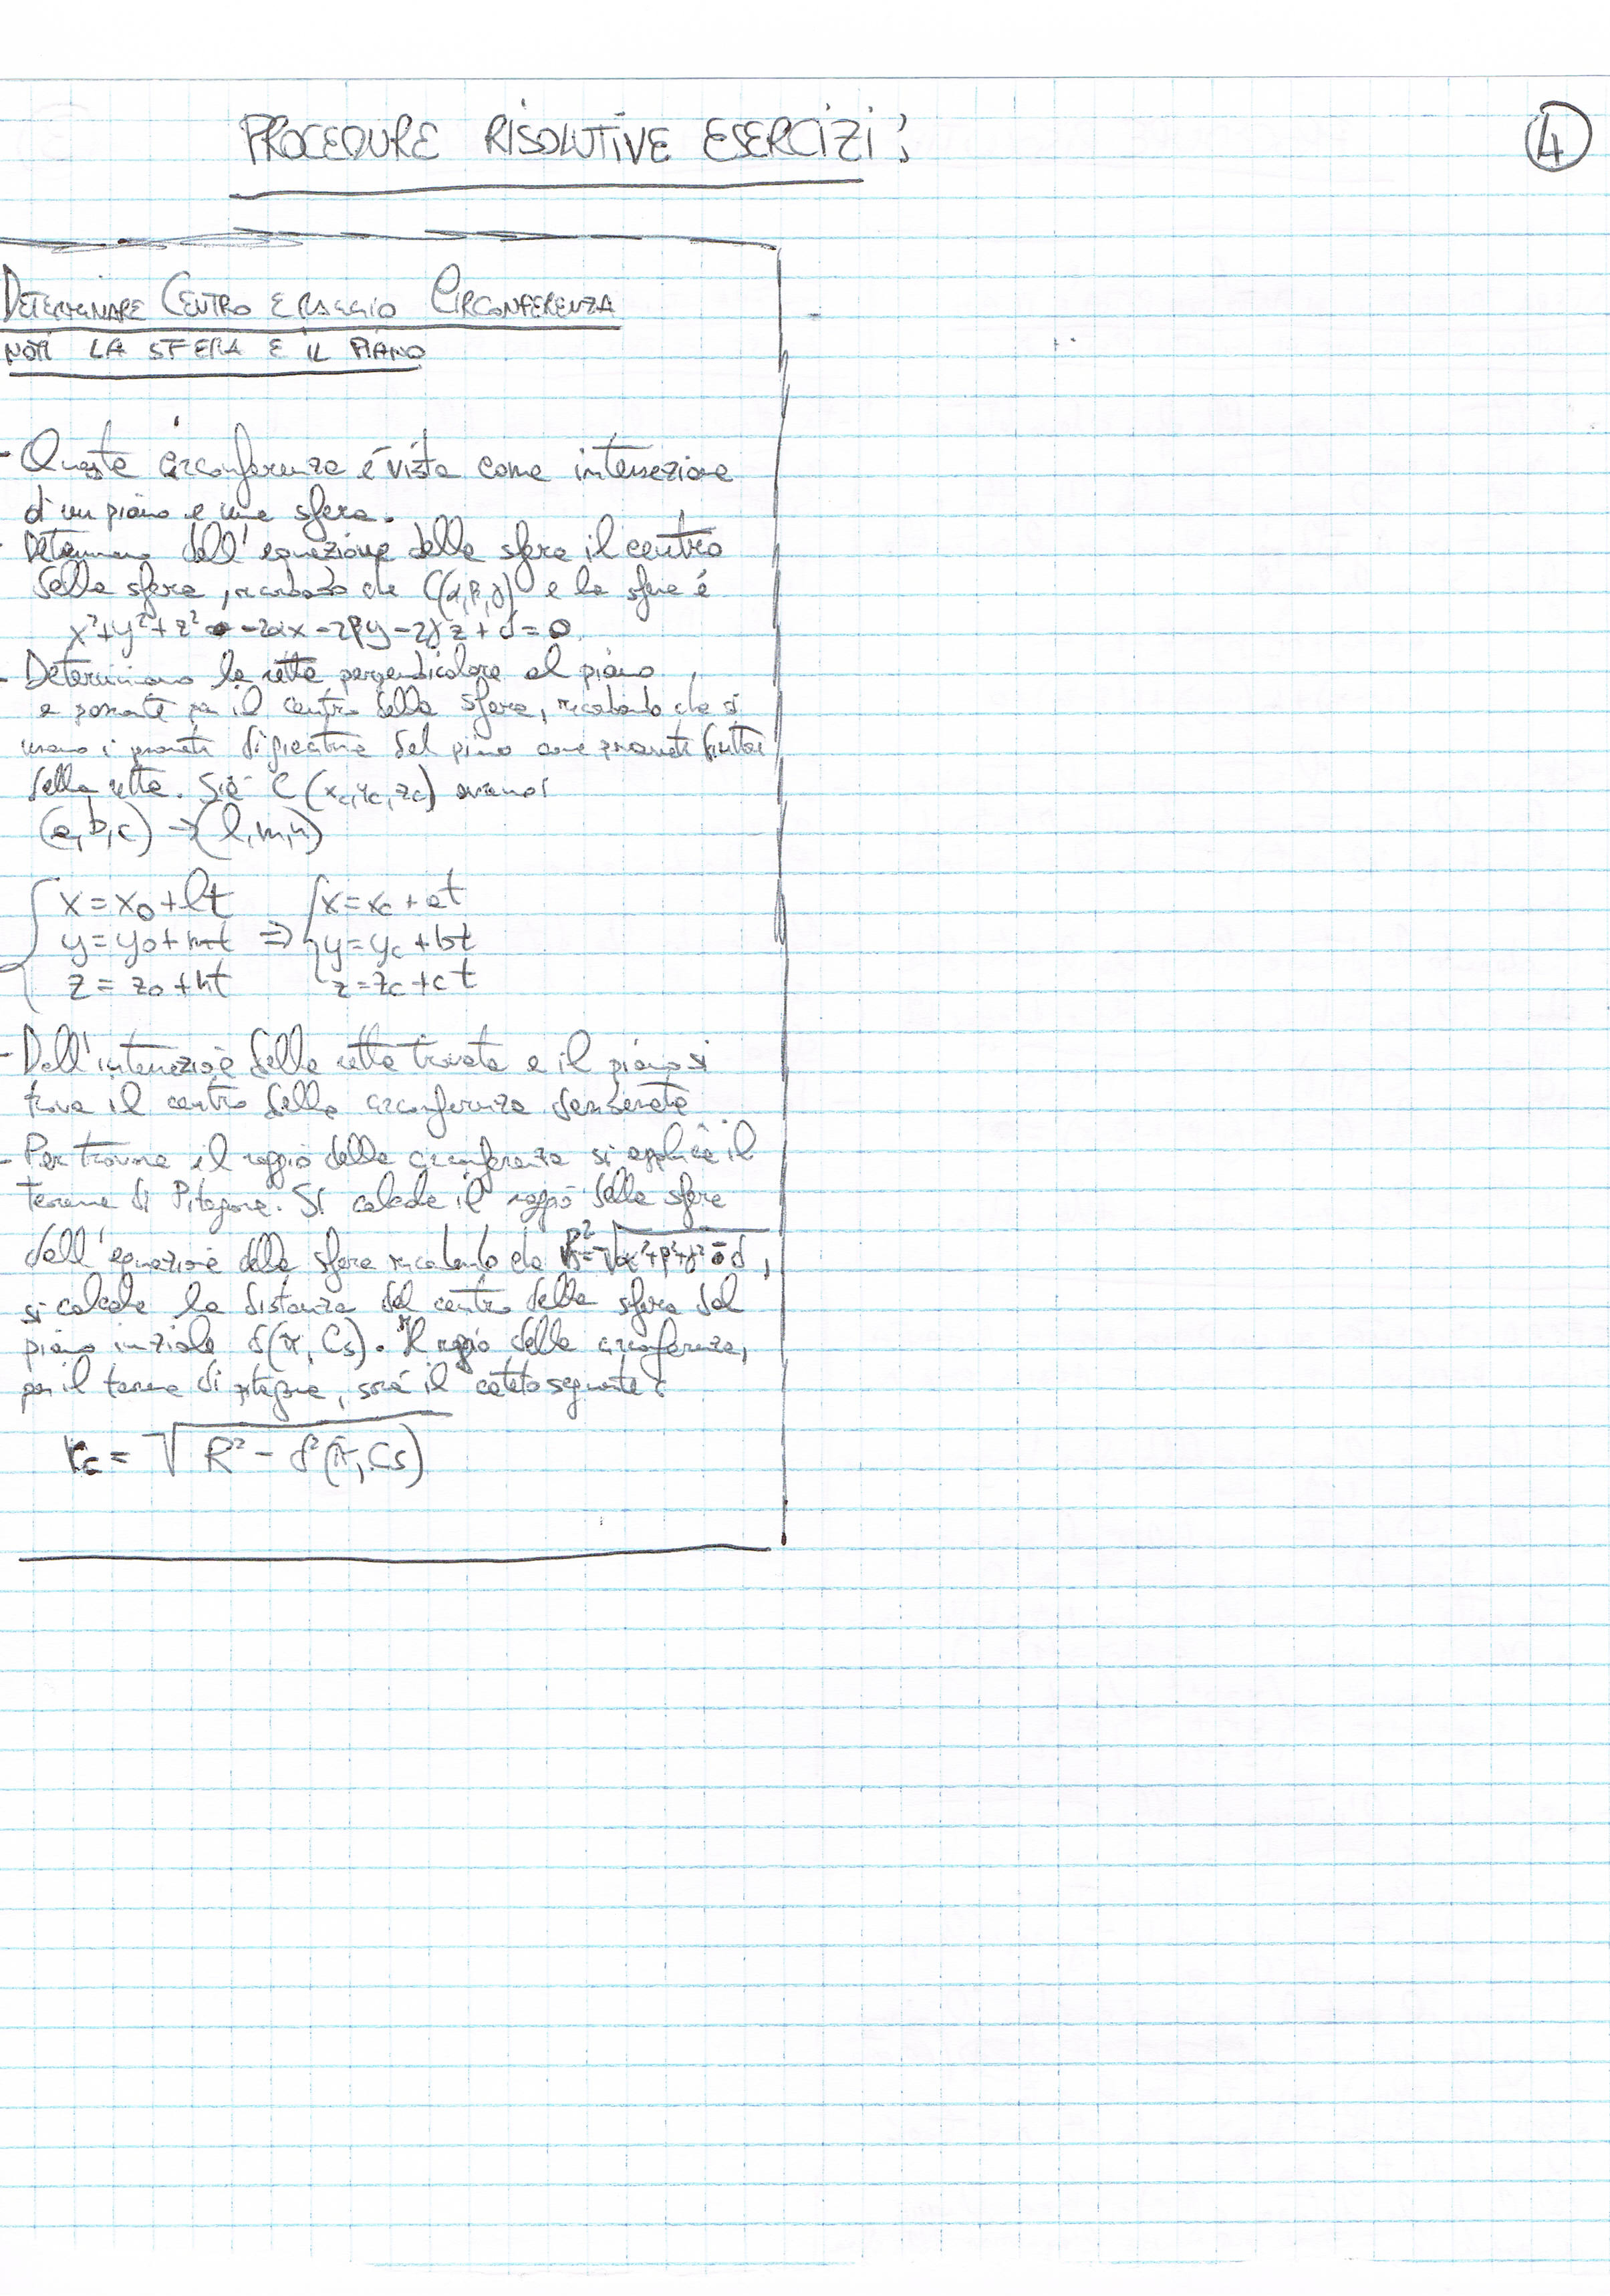 PROCEDURE RISOLUTIVE ESERCIZI:
4
DETERMINARE CENTRO E RAGGIO CIRCONFERENZA
NOTI LA SFERA E IL PIANO
- Questa circonferenza è vista come intersezione
di un piano e una sfera.
- Determino dall'equazione della sfera il centro
della sfera, ricordando che C(α,β,γ) e la sfera è
x²+y²+z² -2αx-2βy-2γz+d=0
- Determiniamo la retta perpendicolare al piano
e passante per il centro della sfera, ricordando che si
usano i parametri di giacitura del piano come parametri direttori
della retta. Sia C(xc,yc,zc) avremo:
(a,b,c) → (l,m,n)
x=x0+lt x=xc+at
y=y0+mt ⇒ y=yc+bt
z=z0+nt z=zc+ct
- Dall'intersezione della retta trovata e il piano si
trova il centro della circonferenza desiderata
- Per trovare il raggio della circonferenza si applica il
teorema di Pitagora. Si calcola il raggio della sfera
dall'equazione della sfera ricordando che R²=√α²+β²+γ²-d,
si calcola la distanza del centro della sfera dal
piano iniziale d(π, Cs). Il raggio della circonferenza,
per il teorema di pitagora, sarà il cateto seguente:
rc = √R² - d²(π, Cs)